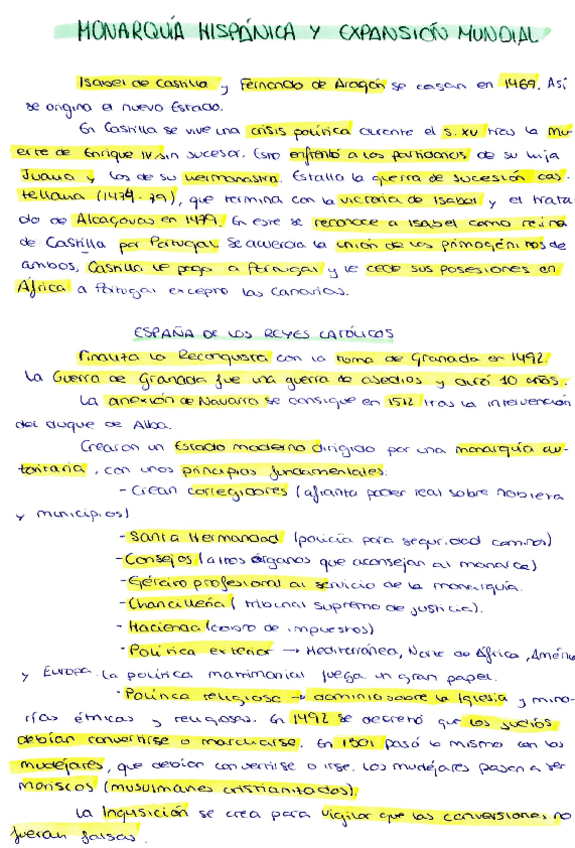 MONARQUÍA HISPÁNICA Y EXPANSIÓN MUNDIAL
Isabel de Castilla y Fernando de Aragón se casan en 1469. Así
se origina el nuevo Estado.
En Castilla se vive una crisis política durante el s. XV tras la mu-
erte de Enrique IV sin sucesor. Esto enfrentó a los partidarios de su hija
Juana y los de su hermanastra. Estalla la guerra de sucesión cas-
tellana (1474-79), que termina con la victoria de Isabel y el trata
do de Alcaçovas en 1479. En este se reconoce a Isabel como reina
de Castilla por Portugal. Se acuerda la unión de los primogénitos de
ambos, Castilla le paga a Portugal y le cede sus posesiones en
África a Portugal excepto las Canarias.
ESPAÑA DE LOS REYES CATÓLICOS
Finaliza la Reconquista con la toma de Granada en 1492.
La Guerra de Granada fue una guerra de asedios y duró 10 años.
La anexión de Navarra se consigue en 1512 tras la intervención
del duque de Alba.
Crearon un Estado moderno dirigido por una monarquía au-
toritaria, con unos principios fundamentales:
- Crean corregidores (afianza poder real sobre nobleza
y municipios)
- Santa Hermandad (policía para seguridad caminos)
- Consejos (altos órganos que aconsejan al monarca)
- Ejército profesional al servicio de la monarquía.
- Chancillería (tribunal supremo de justicia).
- Hacienda (cobro de impuestos)
- Política exterior → Mediterráneo, Norte de África, Améric
y Europa. La política matrimonial juega un gran papel.
- Política religiosa → dominio sobre la Iglesia y mino-
rías étnicas y religiosas. En 1492 se decretó que los judíos
debían convertirse o marcharse. En 1501 pasó lo mismo con los
mudéjares, que debían convertirse o irse. Los mudéjares pasan a ser
moriscos (musulmanes cristianizados)
La Inquisición se crea para vigilar que las conversiones no
fueran falsas.